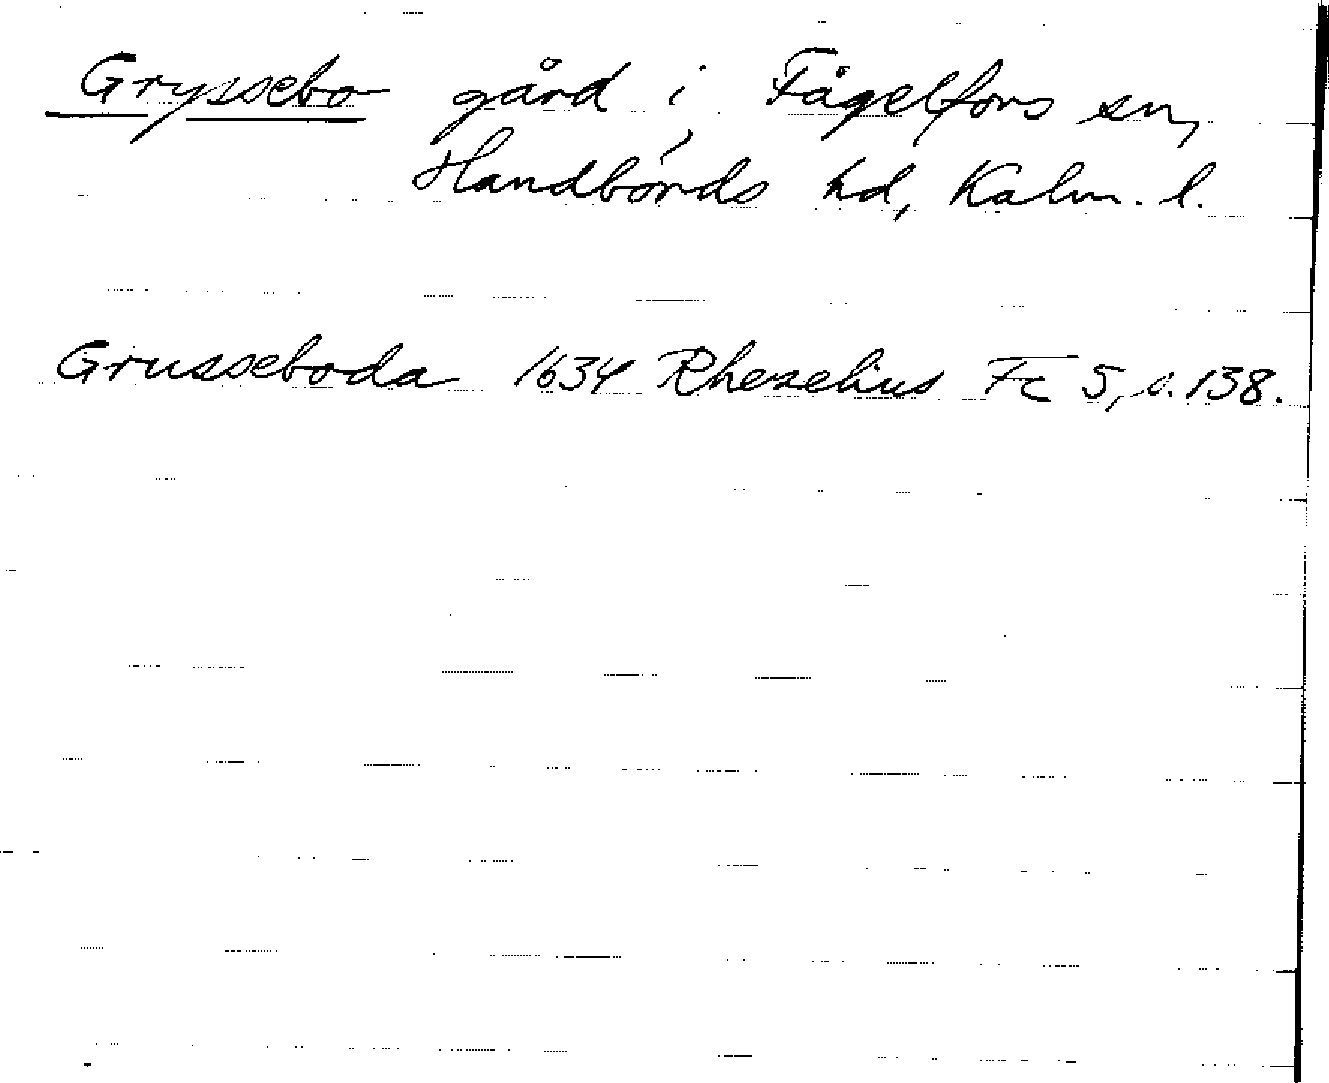 Gryssebo gård i Fågelfors sn,
Handbörds hd, Kalm. l.
Grusseboda 1634 Rhezelius Fc 5, s. 138.